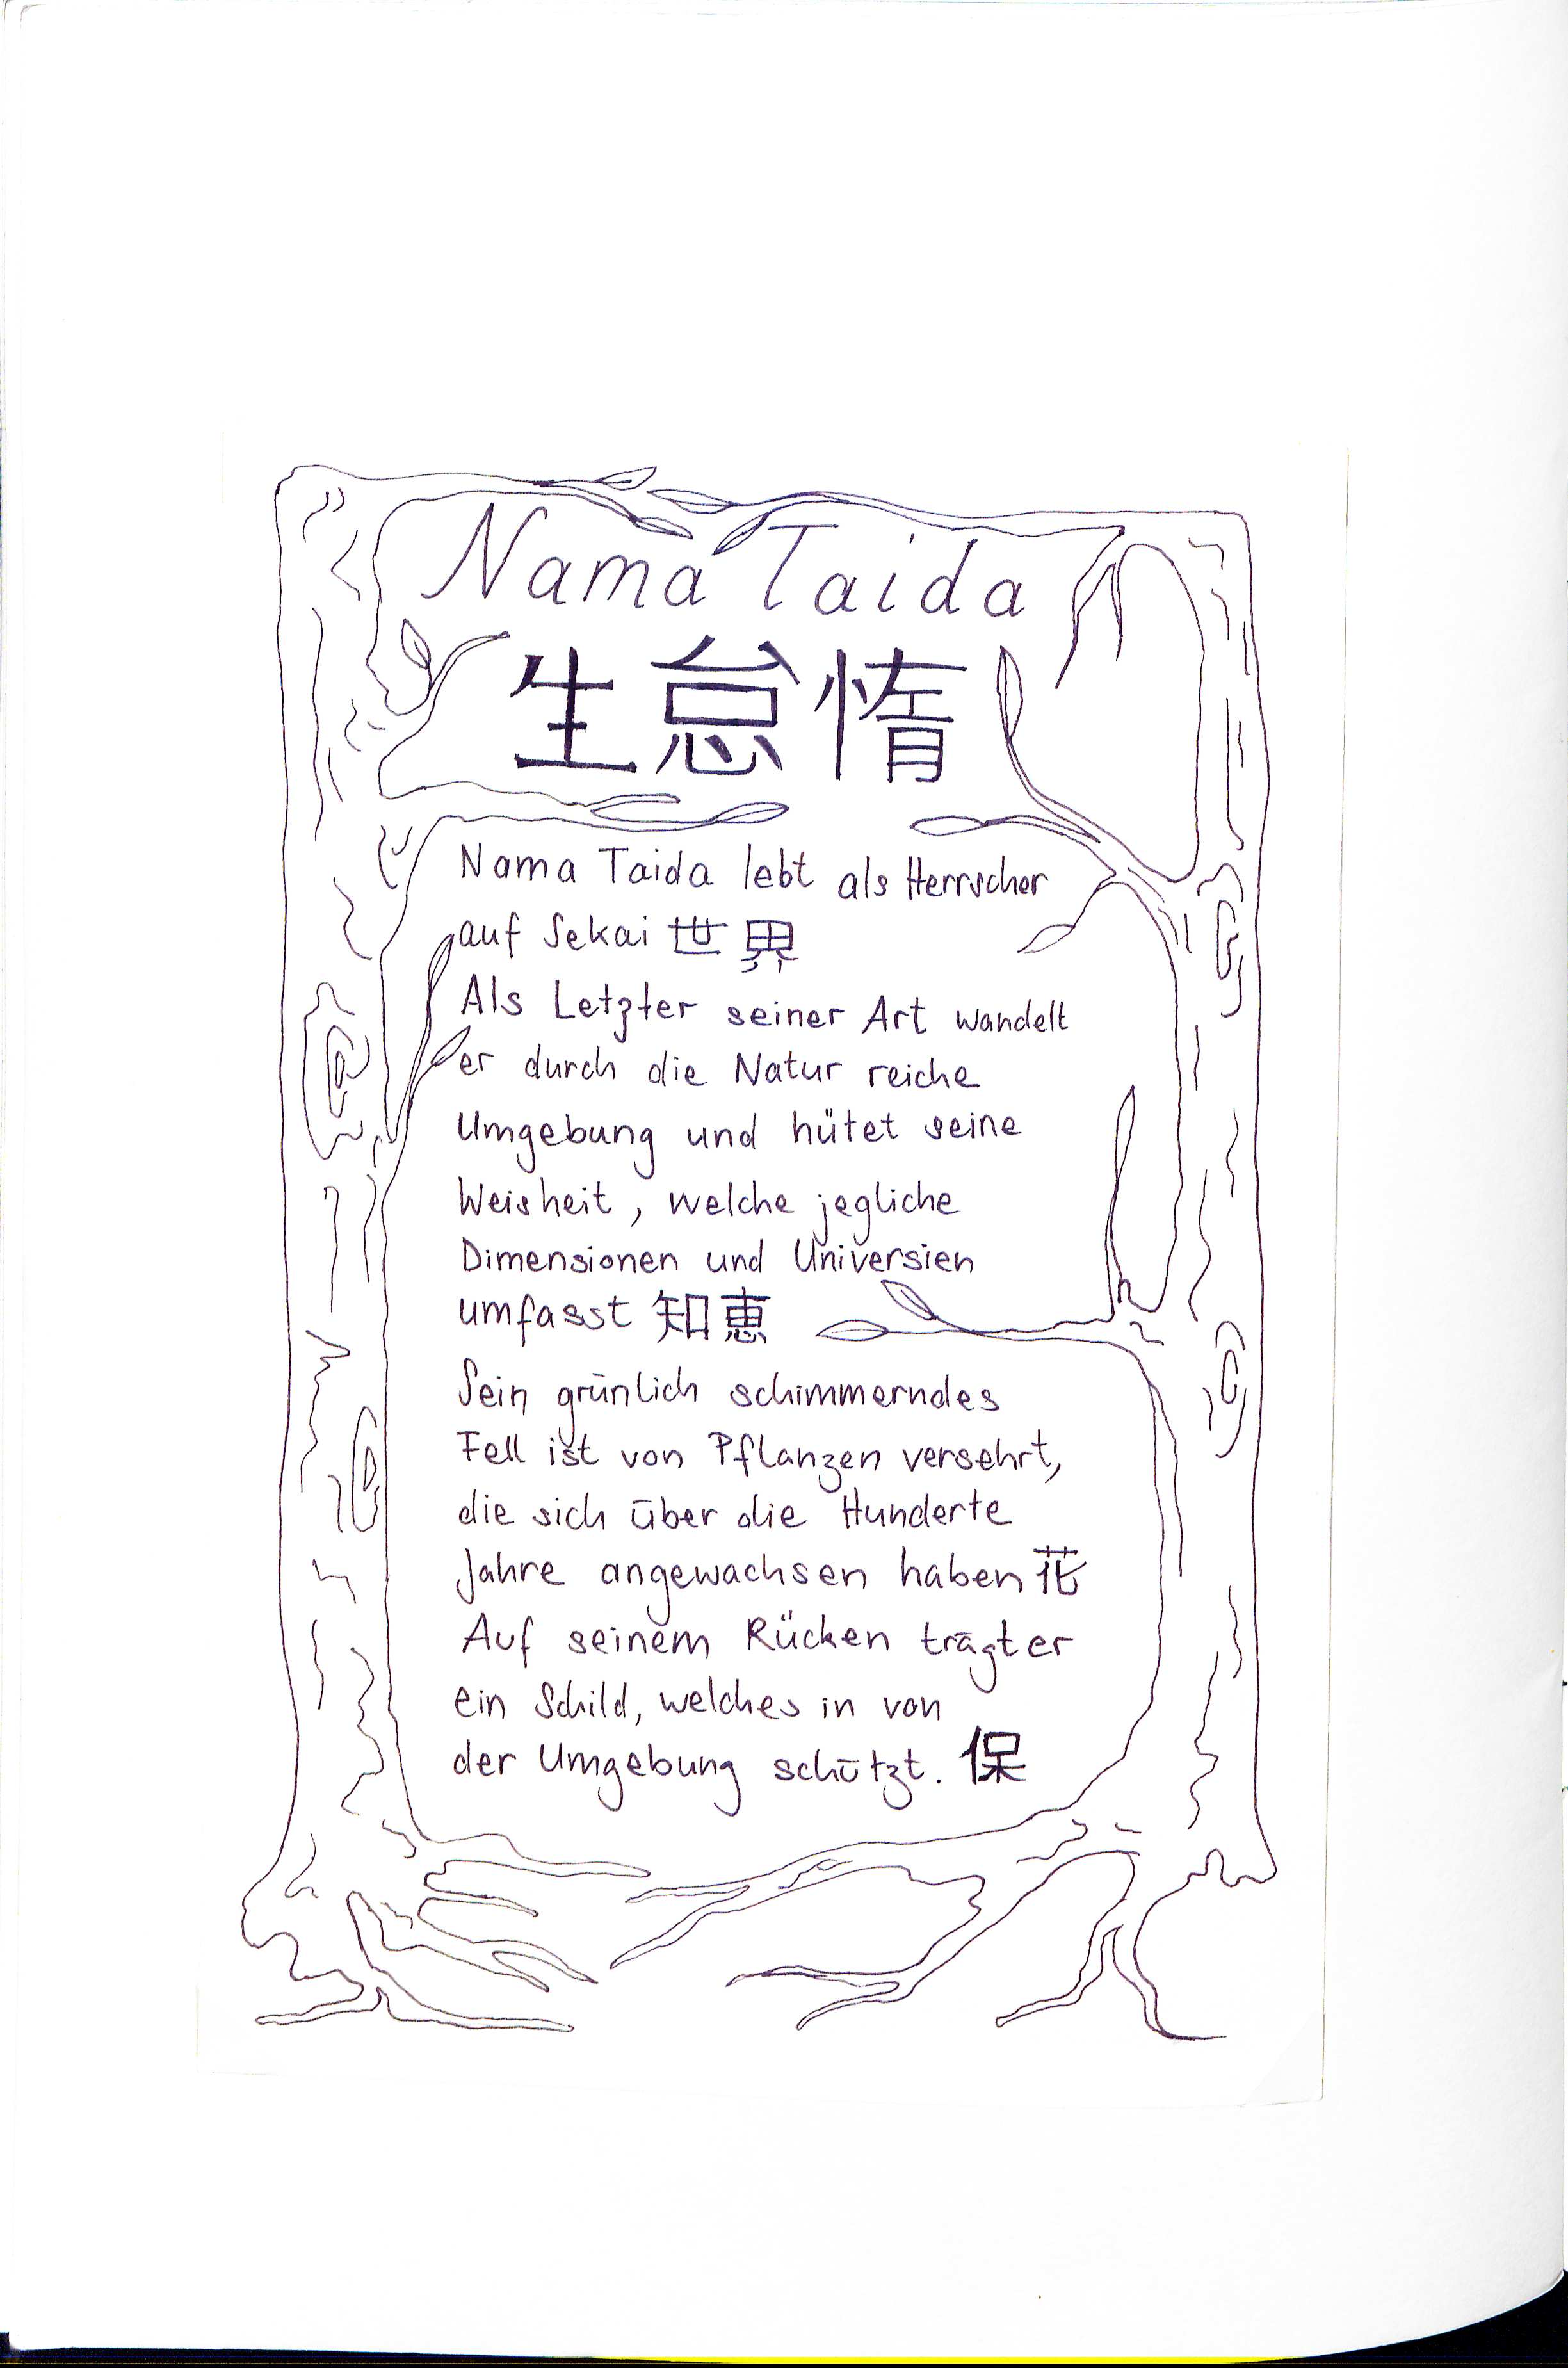 Nama Taida
生怠惰
Nama Taida lebt als Herrscher
auf Sekai 世界
Als Letzter seiner Art wandelt
er durch die Natur reiche
Umgebung und hütet seine
Weisheit, welche jegliche
Dimensionen und Universien
umfasst 知恵
Sein grünlich schimmerndes
Fell ist von Pflanzen versehrt,
die sich über die Hunderte
Jahre angewachsen haben 花
Auf seinem Rücken trägt er
ein Schild, welches in von
der Umgebung schützt. 保